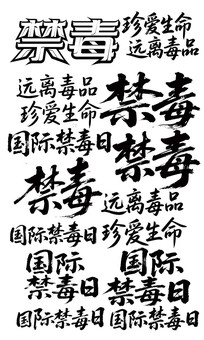 禁毒
珍爱生命
远离毒品
远离毒品
珍爱生命
禁毒
国际禁毒日
禁毒
禁毒
远离毒品
国际禁毒日
珍爱生命
国际
禁毒日
国际
禁毒日
国际禁毒日
国际禁毒日